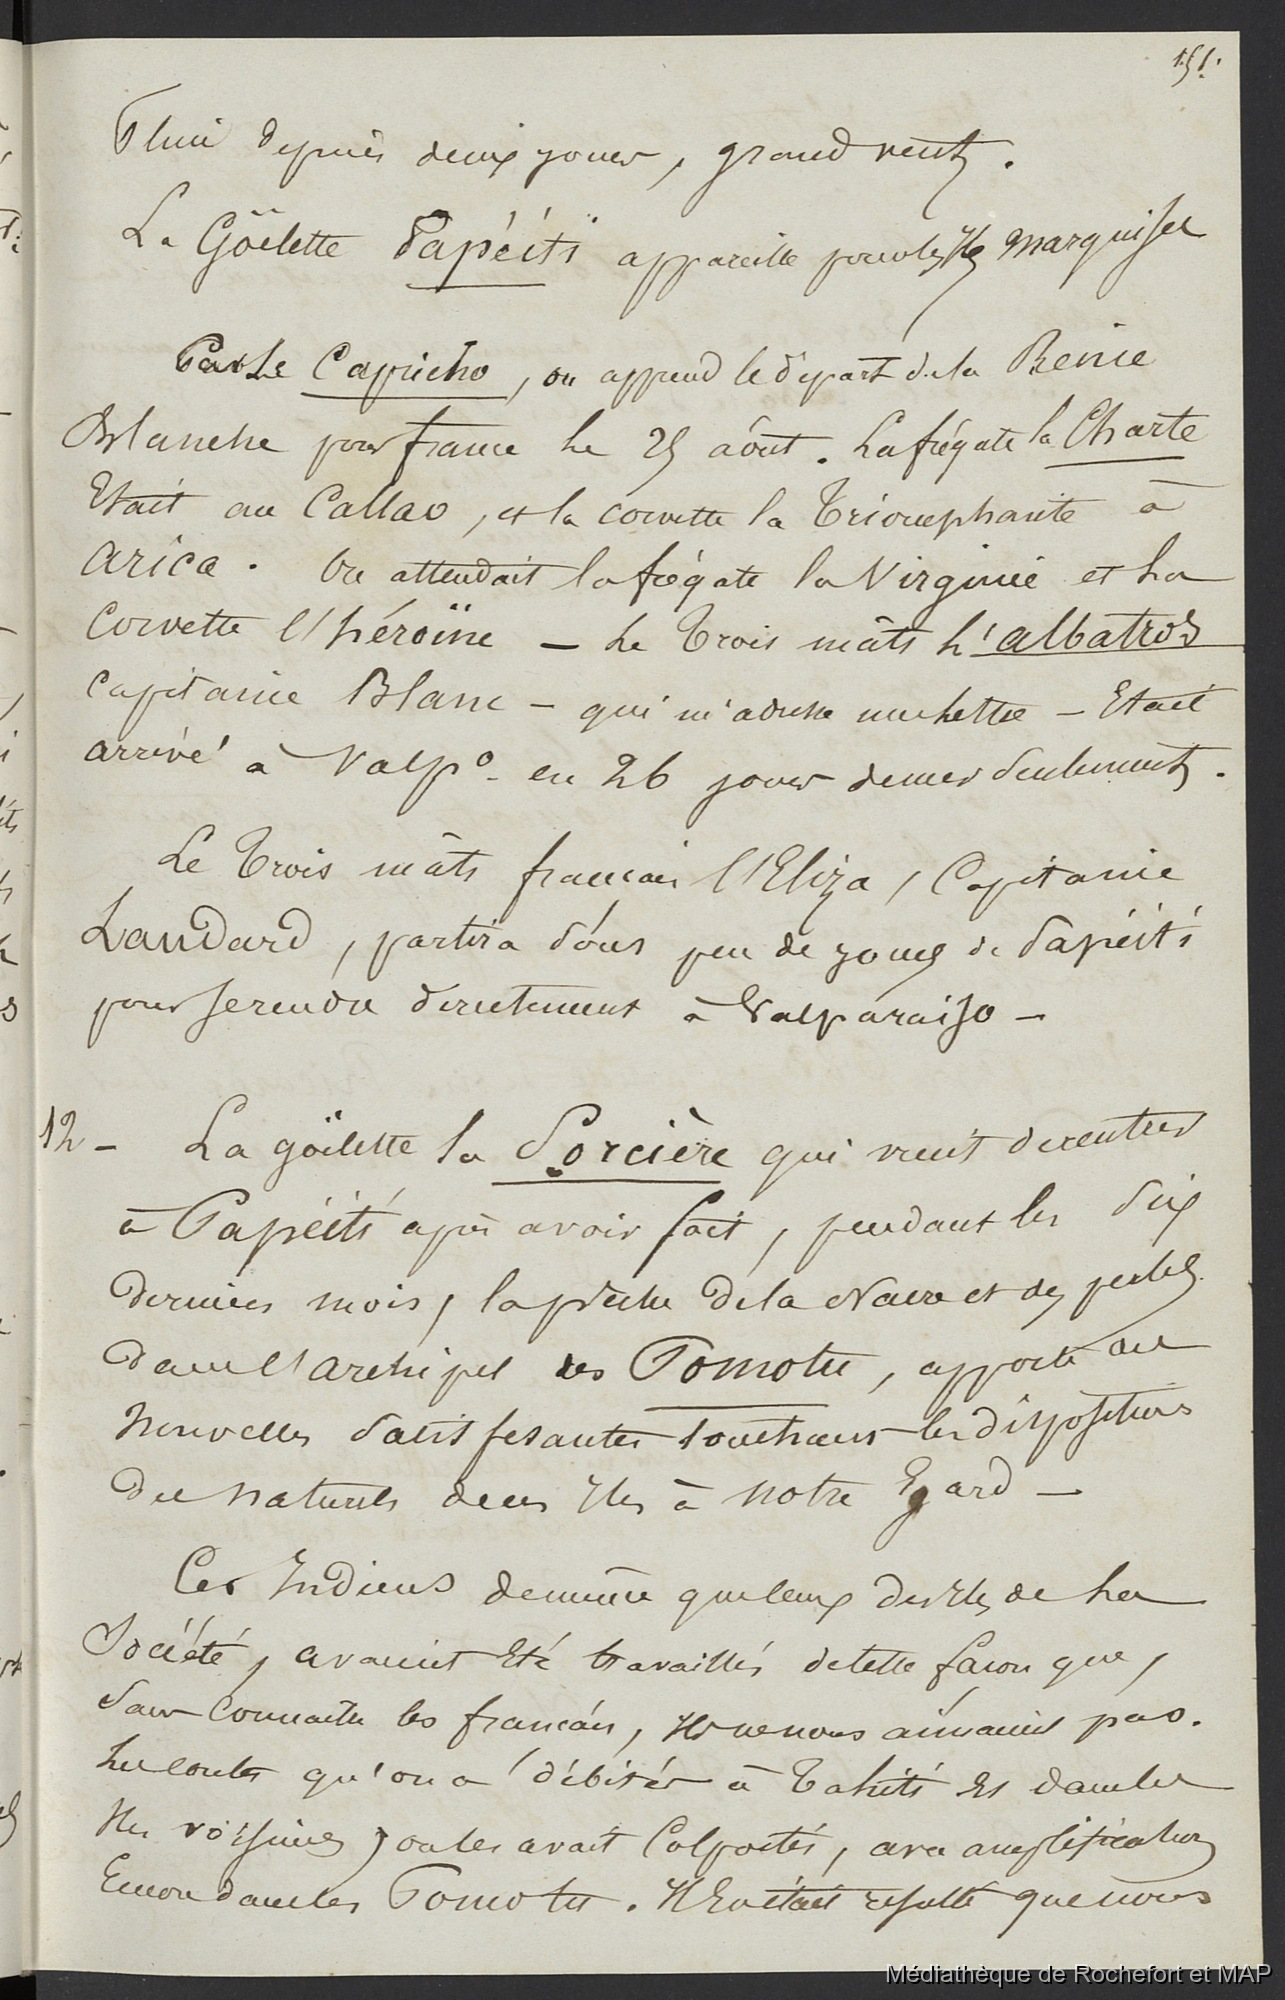 151.
Pluie depuis deux jours, grand vent.
La Göelette Papéïti appareille pour les Iles Marquises
Par Le Capricho, on apprend le départ de la Reine
Blanche pour france le 25 août. La frégate la Charte
Etait au Callao, et la corvette la Triomphante à
Arica. On attendait la frégate la Virginie et La
Corvette l'héroïne — Le Trois mâts L'albatros
capitaine Blanc — qui m'adresse une lettre — Etait
arrivé à Valpº. en 26 jours de mer seulement.
Le Trois mâts français l'Eliza, Capitaine
Landard, partira sous peu de jours de Papéiti
pour se rendre directement à Valparaiso —
12 — La göelette la Sorcière qui vient de rentrer
à Papéiti après avoir fait, pendant les six
derniers mois, la pêche de la Nacre et des perles
dans l'archipel des Pomotu, apporte des
Nouvelles satisfesantes touchant les dispositions
des naturels de ces Iles à notre Egard —
Ces Indiens de même que ceux des Iles de La
Société, avaient été travaillés de telle façon que,
Sans connaître les français, Ils ne nous aimaient pas.
Les contes qu'on a débités à Tahiti et dans les
Iles voisines, on les avait Colportés, avec amplification
Encore dans les Pomotu. Il en était résulté que nous
Médiathèque de Rochefort et MAP